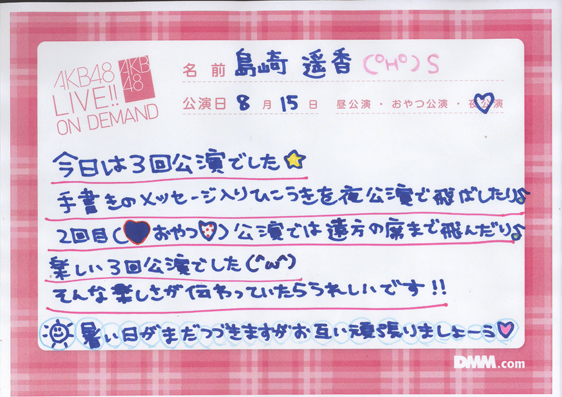 AKB48
LIVE!!
ON DEMAND
AKB
48
名前 島崎 遥香 (°H°)S
公演日 8月15日 昼公演・おやつ公演・夜公演
今日は3回公演でした☆
手書きのメッセージ入りひこうきを夜公演で飛ばしたり♪
2回目(♥おやつ♡)公演では遠方の席まで飛んだり♪
楽しい3回公演でした(^ω^)
そんな楽しさが伝わっていたらうれしいです!!
暑い日がまだつづきますがお互い頑張りましょーう♡
DMM.com